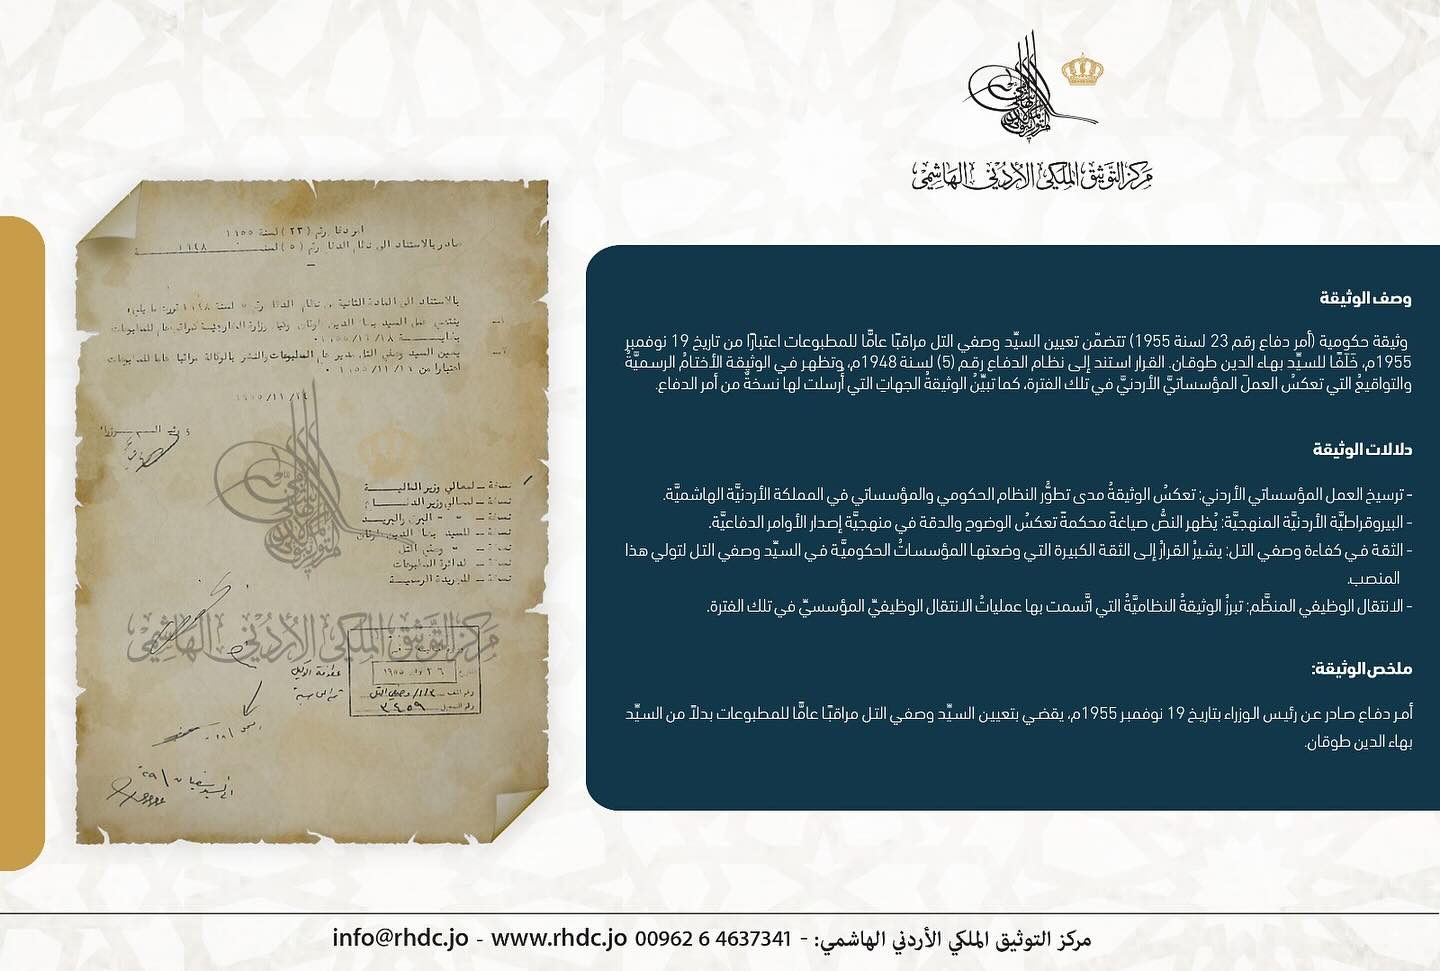 مركز التوثيق الملكي الأردني الهاشمي
وصف الوثيقة
وثيقة حكومية (أمر دفاع رقم 23 لسنة 1955) تتضمّن تعيين السيِّد وصفي التل مراقبًا عامًّا للمطبوعات اعتبارًا من تاريخ 19 نوفمبر
1955م، خَلَفًا للسيِّد بهاء الدين طوقان. القرار استند إلى نظام الدفاع رقم (5) لسنة 1948م، وتظهر في الوثيقة الأختامُ الرسميَّةُ
والتواقيعُ التي تعكسُ العملَ المؤسساتيَّ الأردنيَّ في تلك الفترة، كما تبيِّنُ الوثيقةُ الجهاتِ التي أرسلت لها نسخةٌ من أمر الدفاع.
دلالات الوثيقة
- ترسيخ العمل المؤسساتي الأردني: تعكسُ الوثيقةُ مدى تطوُّر النظام الحكومي والمؤسساتي في المملكة الأردنيَّة الهاشميَّة.
- البيروقراطيَّة الأردنيَّة المنهجيَّة: يُظهر النصُّ صياغةً محكمةً تعكسُ الوضوح والدقة في منهجيَّة إصدار الأوامر الدفاعيَّة.
- الثقة في كفاءة وصفي التل: يشيرُ القرارُ إلى الثقة الكبيرة التي وضعتها المؤسساتُ الحكوميَّة في السيِّد وصفي التل لتولي هذا
المنصب.
- الانتقال الوظيفي المنظَّم: تبرزُ الوثيقةُ النظاميَّةُ التي اتَّسمت بها عملياتُ الانتقال الوظيفيِّ المؤسسيِّ في تلك الفترة.
ملخص الوثيقة:
أمر دفاع صادر عن رئيس الوزراء بتاريخ 19 نوفمبر 1955م، يقضي بتعيين السيِّد وصفي التل مراقبًا عامًّا للمطبوعات بدلاً من السيِّد
بهاء الدين طوقان.
رقم (٢٣) لسنة ١٩٥٥
صادر بالاستناد الى نظام الدفاع رقم (٥) لسنة ١٩٤٨
بالاستناد الى المادة الثانية من نظام الدفاع رقم ٥ لسنة ١٩٤٨
ينتهي عمل السيد بهاء الدين طوقان وكيل وزارة الخارجية كمراقب عام للمطبوعات
يعين السيد وصفي التل مدير المطبوعات والنشر بالوكالة مراقبا عاما للمطبوعات
اعتبارا من
رئيس الوزراء
نسخة - لمعالي وزير المالية
نسخة - لمعالي وزير
نسخة - البرق والبريد
نسخة - للسيد بهاء الدين طوقان
نسخة - وصفي التل
نسخة - لدائرة المطبوعات
نسخة - للجريدة الرسمية
مركز التوثيق الملكي الأردني الهاشمي
١٩٥٥
وصفي التل
٣٤٥٩
مركز التوثيق الملكي الأردني الهاشمي: - 00962 6 4637341 www.rhdc.jo - info@rhdc.jo